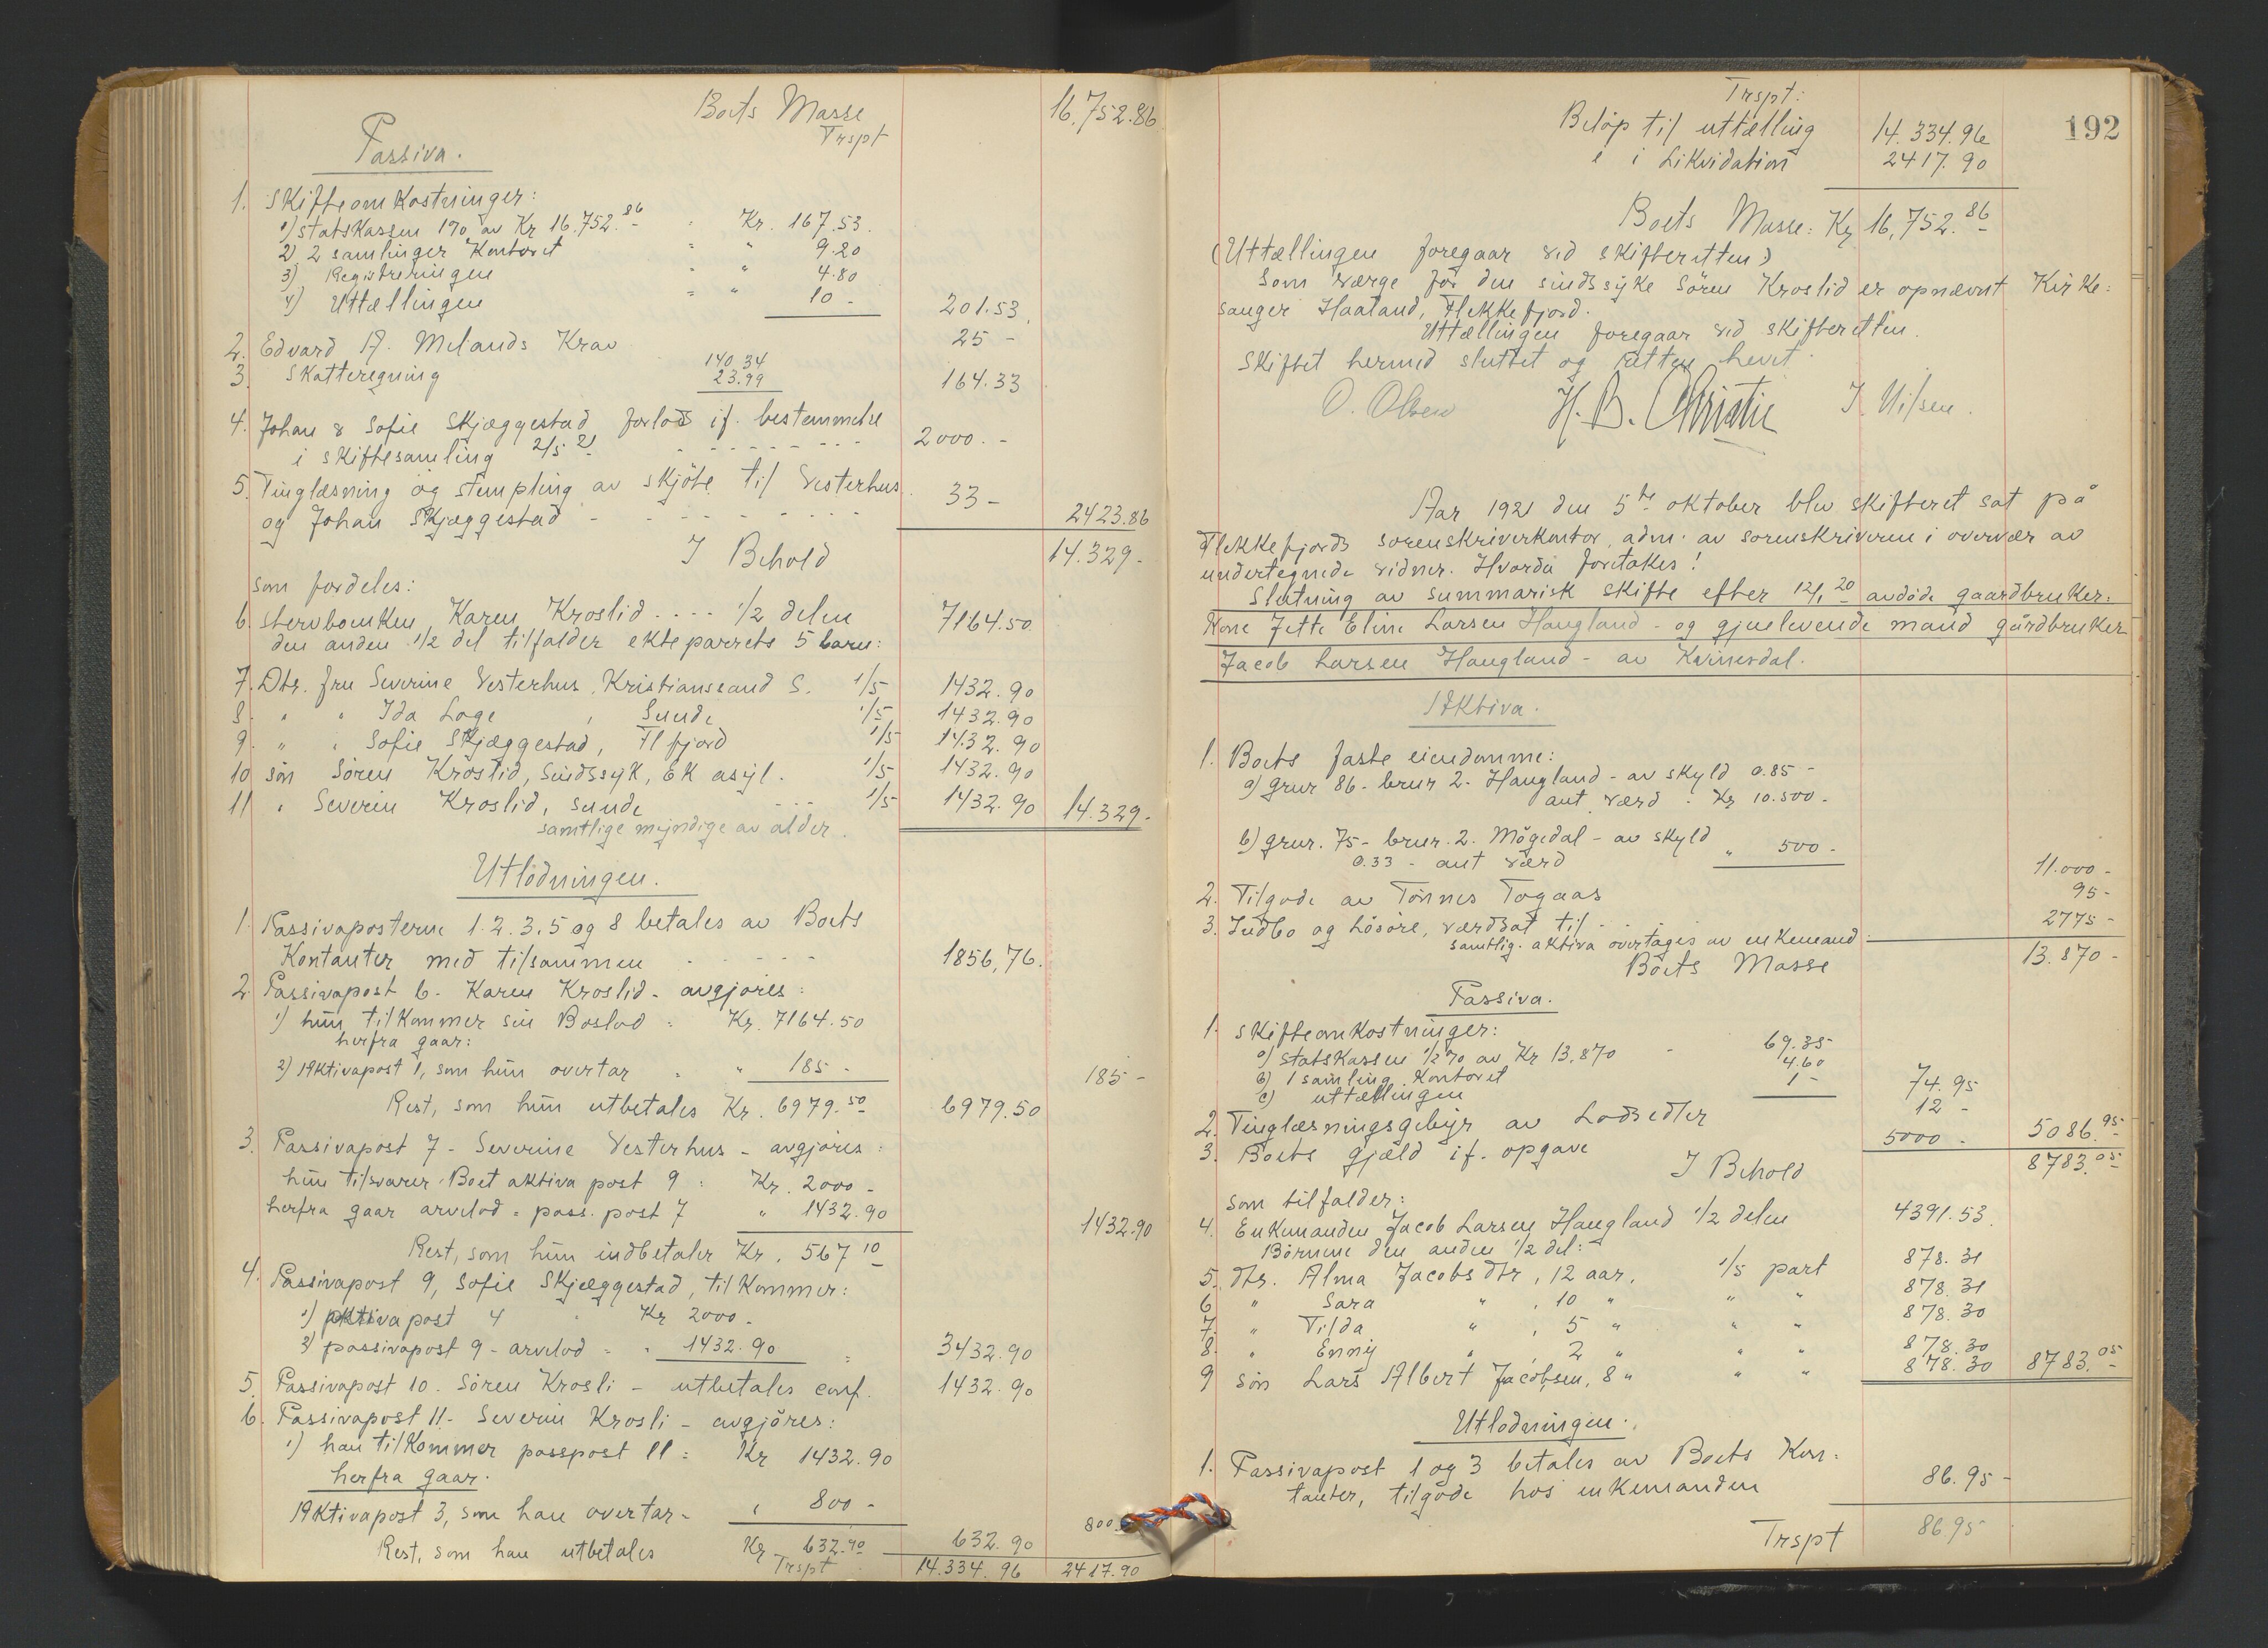 Boets Masse
Trspt 16,752.86
Passiva.
1. Skifteomkostninger:
1) Statskassen 1% av Kr 16.752.86 = Kr. 167.53.
2) 2 samlinger Kontoret = " 9.20
3) Registreringen = " 4.80
4) Uttællingen = " 10 - 201.53.
2. Edvard A. Melands Krav 25 -
3. Skatteregning 140.34
23.99 164.33
4. Johan & Sofie Skjæggestad forlods if. bestemmelse
i skiftesamling 2/5 21 - - - - - - - 2000. -
5. Tinglæsning og stempling av skjöte til Vesterhus
og Johan Skjæggestad - - - - - - - - 33 - 2423.86
I Behold 14.329 -
som fordeles:
6. Stervboenken Karen Kroslid . . . . 1/2 delen 7164.50
den anden 1/2 del tilfalder ekteparrets 5 barn:
7. Dtr. fru Severine Vesterhus, Kristianssand S. 1/5 1432.90
8. " " Ida Loge, Sunde 1/5 1432.90
9. " " Sofie Skjæggestad, Fl fjord 1/5 1432.90
10 sön Sören Kroslid, Sindssyk, EK asyl. 1/5 1432.90
11 " Severin Kroslid, Sunde - - - 1/5 1432.90 14.329 -
samtlige myndige av alder.
Utlodningen.
1. Passivaposterne 1. 2. 3. 5 og 8 betales av Boets
Kontanter med tilsammen - - - - - 1856,76.
2. Passivapost 6 - Karen Kroslid - avgjöres:
1) hun tilkommer sin Boslod = Kr. 7164.50
herfra gaar:
2) Aktivapost 1, som hun overtar = " 185 - 185 -
Rest, som hun utbetales Kr. 6979.50 6979.50
3. Passivapost 7 - Severine Vesterhus - avgjöres:
hun tilsvarer Boet aktiva post 9 = Kr. 2000 -
herfra gaar arvelod = pass. post 7 " 1432.90 1432.90
Rest, som hun indbetaler Kr. 567 10
4. Passivapost 9, Sofie Skjæggestad, tilkommer:
1) passivapost 4 " Kr 2000 -
2) passivapost 9 - arvelod = " 1432.90 = 3432.90
5. Passivapost 10. Sören Krosli - utbetales conf. 1432.90
6. Passivapost 11 - Severin Krosli - avgjöres:
1) han tilkommer passpost 11 = Kr 1432.90
herfra gaar.
Aktivapost 3, som han overtar - " 800 - 800
Rest, som han utbetales Kr 632.90 632.90
Trspt 14.334.96 2417.90
192
Trspt:
Belöp til uttælling 14.334.96
" i Likvidation 2417.90
Boets Masse: Kr 16,752.86
(Uttællingen foregaar ved skifteretten)
Som værge for den sindssyke Sören Kroslid er opnævnt Kirke:
sanger Haaland, Flekkefjord.
Uttællingen foregaar ved skifteretten.
Skiftet hermed sluttet og retten hevet.
O. Olsen H. B. Christie J. Nilsen.
Aar 1921 den 5te oktober blev skifteret sat på
Flekkefjords sorenskriverkontor, adm. av sorenskriveren i overvær av
undertegnede vidner. Hvorda foretakes!
Slutning av summarisk skifte efter 12/1 20 avdöde gaardbruker:
Kone Jette Eline Larsen Haugland - og gjenlevende mand gårdbruker
Jacob Larsen Haugland - av Kvinesdal.
Aktiva.
1. Boets faste eiendomme:
a) grnr 86 - brnr 2. Haugland - av skyld 0.85 -
ant. værd : Kr 10.500 -
b) grnr. 75 - brnr. 2. Mögedal - av skyld
0.33 - ant værd " 500 - 11.000 -
2. Tilgode av Tönnes Togaas 95 -
3. Indbo og lösöre, værdsat til - . - 2775 -
samtlig. aktiva overtages av enkemand
Boets Masse 13.870 -
Passiva.
1. Skifteomkostninger:
a) Statskassen 1/2 % av Kr 13.870 - 69.35
b) 1 samling. Kontoret 4.60
c) uttællingen 1 - 74.95
2. Tinglæsningsgebyr av Lodsedler 12 -
3. Boets gjæld if. opgave 5000 - 5086.95
I Behold 8783.05
som tilfalder:
4. Enkemanden Jacob Larsen Haugland 1/2 delen 4391.53.
Börnene den anden 1/2 del:
5. Dtr. Alma Jacobsdtr, 12 aar, 1/5 part 878.31
6 " Sara " , 10 " " " 878.31
7. " Tilda " , 5 " " " 878.30
8. " Enny " , 2 " " " 878.30
9 sön Lars Albert Jacobsen, 8 " " " 878.30 8783.05
Utlodningen.
1. Passivapost 1 og 3 betales av Boets Kon:
tanter, tilgode hos enkemanden 86.95 -
Trspt 86.95